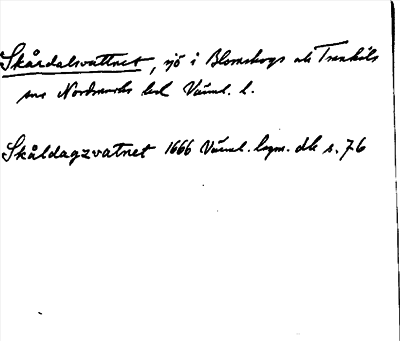 Skårdalsvattnet, sjö i Blomskogs och Trankils
snr Nordmarks hd Värml. l.
Skåldagzvatnet 1666 Värml. lagm. dbr s. 76